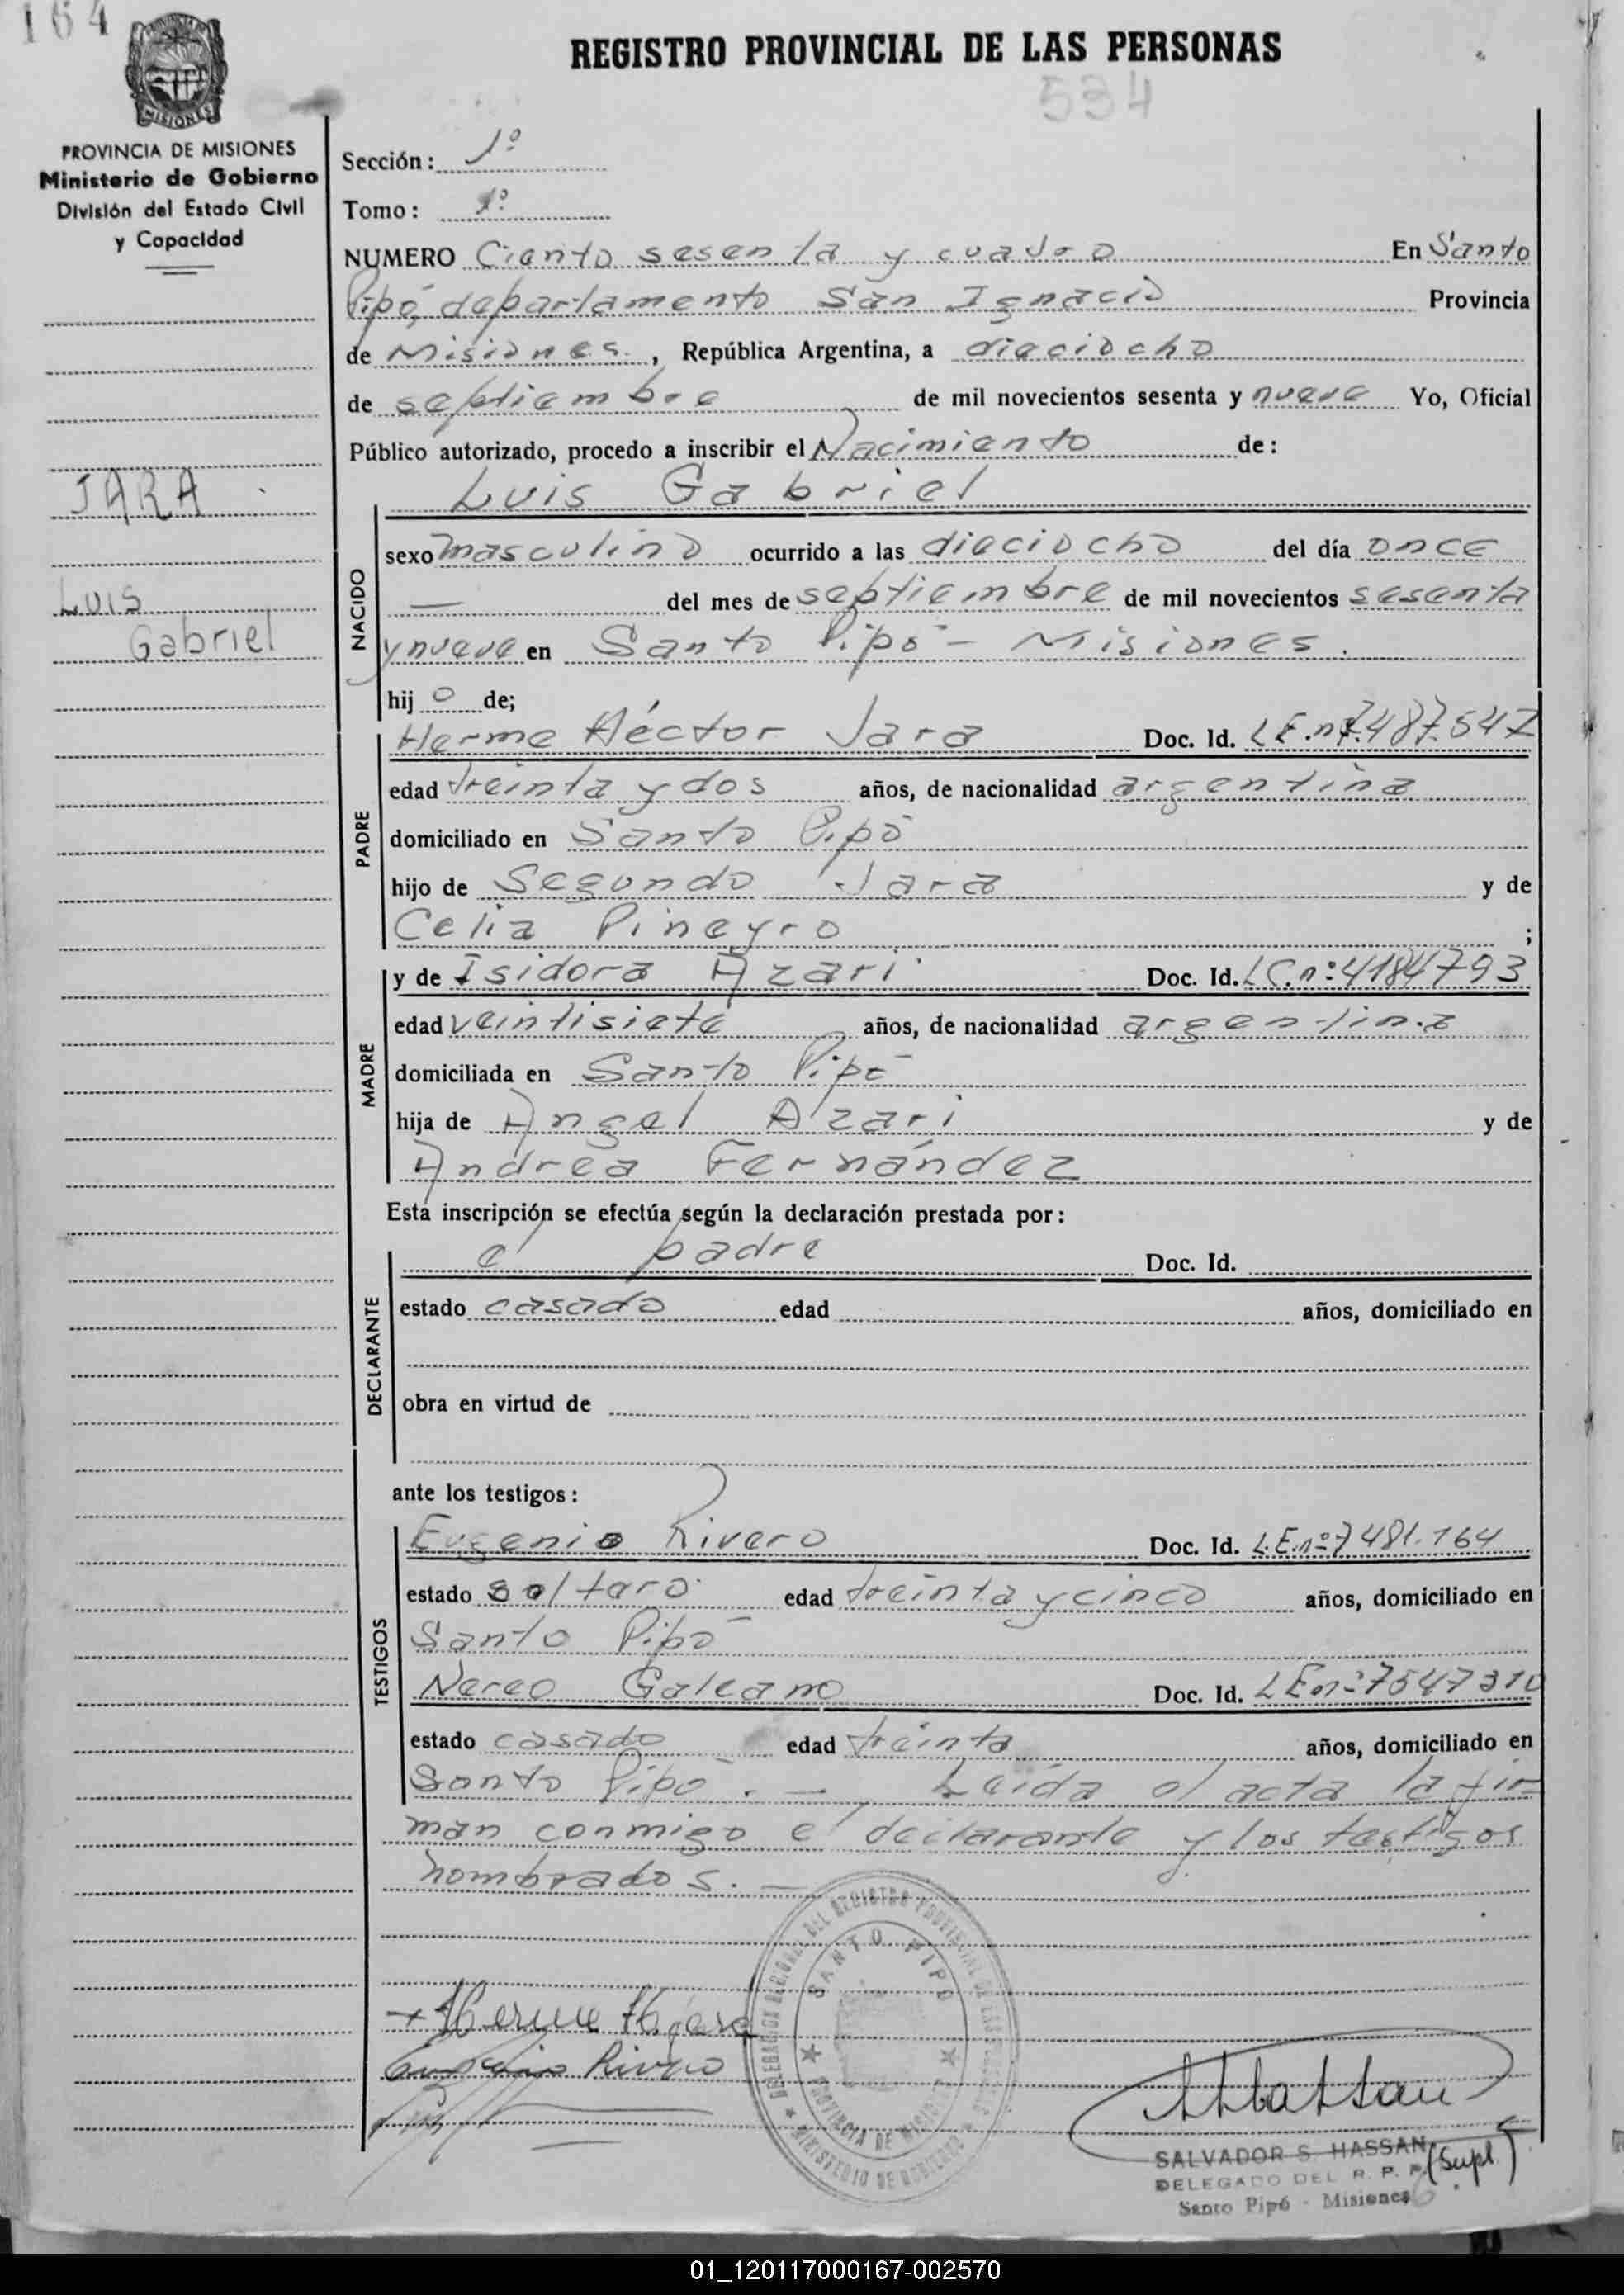 164
REGISTRO PROVINCIAL DE LAS PERSONAS
534
MISIONES
PROVINCIA DE MISIONES
Ministerio de Gobierno
División del Estado Civil
y Capacidad
JARA
Luis
Gabriel
Sección: 1º
Tomo: 1º
NUMERO Ciento sesenta y cuatro En Santo
Pipó, departamento San Ignacio Provincia
de Misiones, República Argentina, a dieciocho
de septiembre de mil novecientos sesenta y nueve Yo, Oficial
Público autorizado, procedo a inscribir el Nacimiento de:
Luis Gabriel
NACIDO
sexo masculino ocurrido a las dieciocho del día once
— del mes de septiembre de mil novecientos sesenta
y nueve en Santo Pipó - Misiones.
hij o de;
PADRE
Herme Héctor Jara Doc. Id. L.E.nº 7.487.547
edad treinta y dos años, de nacionalidad argentina
domiciliado en Santo Pipó
hijo de Segundo Jara y de
Celia Pineyro ;
MADRE
y de Isidora Azari Doc. Id. LC.nº: 4184793
edad veintisiete años, de nacionalidad argentina
domiciliada en Santo Pipó
hija de Angel Azari y de
Andrea Fernández
Esta inscripción se efectúa según la declaración prestada por:
DECLARANTE
el padre Doc. Id.
estado casado edad años, domiciliado en
obra en virtud de
ante los testigos:
TESTIGOS
Eugenio Rivero Doc. Id. L.E.nº 7481.164
estado soltero edad treinta y cinco años, domiciliado en
Santo Pipó
Nereo Galeano Doc. Id. LEnº 7547310
estado casado edad treinta años, domiciliado en
Santo Pipó. — Leída el acta la fir
man conmigo el declarante y los testigos
nombrados. —
DELEGACION REGIONAL DEL REGISTRO PROVINCIAL DE LAS PERSONAS
SANTO PIPO
PROVINCIA DE MISIONES
MINISTERIO DE GOBIERNO
Herme H. Jara
Eugenio Rivero
SALVADOR S. HASSAN
DELEGADO DEL R. P. P. (Supl.)
Santo Pipó - Misiones
01_120117000167-002570